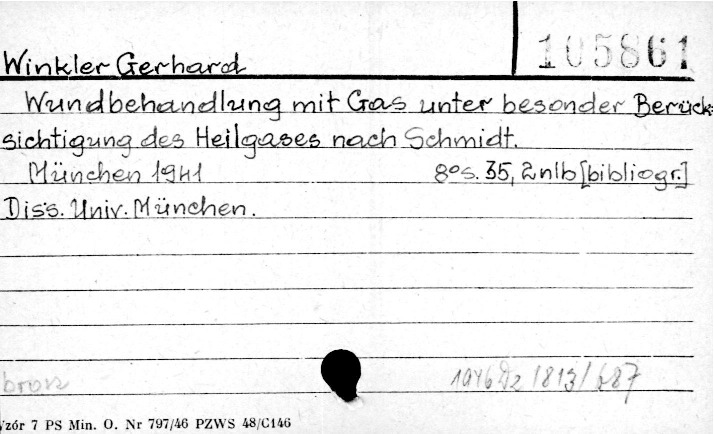 105861
Winkler Gerhard
Wundbehandlung mit Gas unter besonder Berück-
sichtigung des Heilgases nach Schmidt.
München 1941 8° s. 35, 2 nlb [bibliogr.]
Diss. Univ. München.
brosz
1946 Dz /813/687
zór 7 PS Min. O. Nr 797/46 PZWS 48/C146